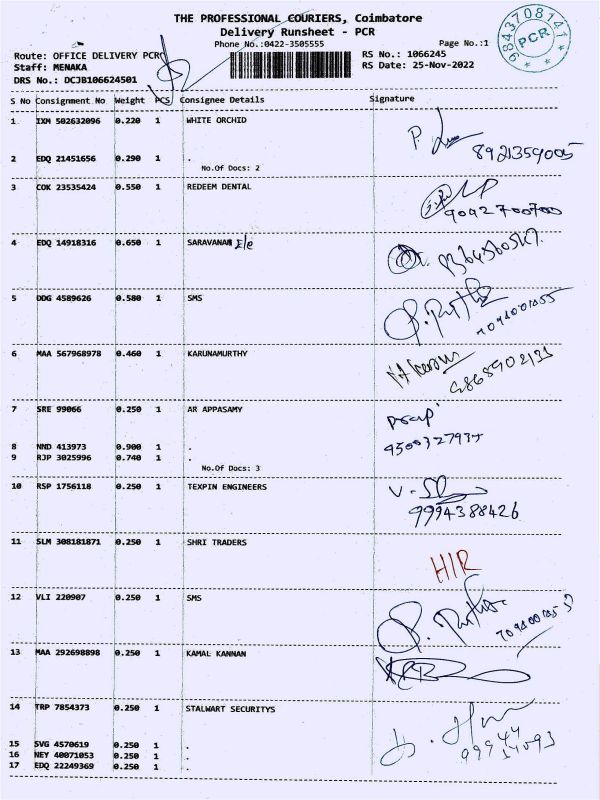 THE PROFESSIONAL COURIERS, Coimbatore
Delivery Runsheet - PCR
Phone No.:0422-3505555
Page No.:1
9843708141
PCR
Route: OFFICE DELIVERY PCR
RS No.: 1066245
Staff: MENAKA
RS Date: 25-Nov-2022
DRS No.: DCJB106624501
S No Consignment No Weight PCS Consignee Details Signature
1 IXM 502632096 0.220 1 WHITE ORCHID
8921359005
2 EDQ 21451656 0.290 1 .
No.Of Docs: 2
3 COK 23535424 0.550 1 REDEEM DENTAL
9092700700
4 EDQ 14918316 0.650 1 SARAVANAN E/e
5 DDG 4589626 0.580 1 SMS
6 MAA 567968978 0.460 1 KARUNAMURTHY
7 SRE 99066 0.250 1 AR APPASAMY
8 NND 413973 0.900 1 .
9 RJP 3025996 0.740 1 .
No.Of Docs: 3
10 RSP 1756118 0.250 1 TEXPIN ENGINEERS
9994388426
11 SLM 308181871 0.250 1 SHRI TRADERS
H/R
12 VLI 220907 0.250 1 SMS
13 MAA 292698898 0.250 1 KAMAL KANNAN
14 TRP 7854373 0.250 1 STALWART SECURITYS
15 SVG 4570619 0.250 1 .
16 NEY 40071053 0.250 1 .
17 EDQ 22249369 0.250 1 .